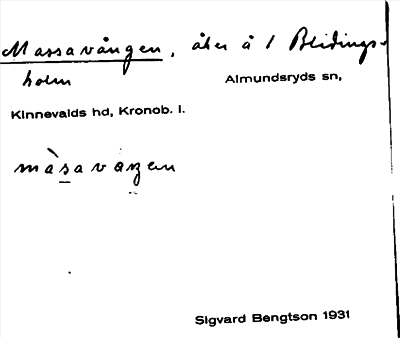 Massavången, åker å 1 Blidings-
holm
Almundsryds sn,
Kinnevalds hd, Kronob. l.
màsavaŋen
Sigvard Bengtson 1931